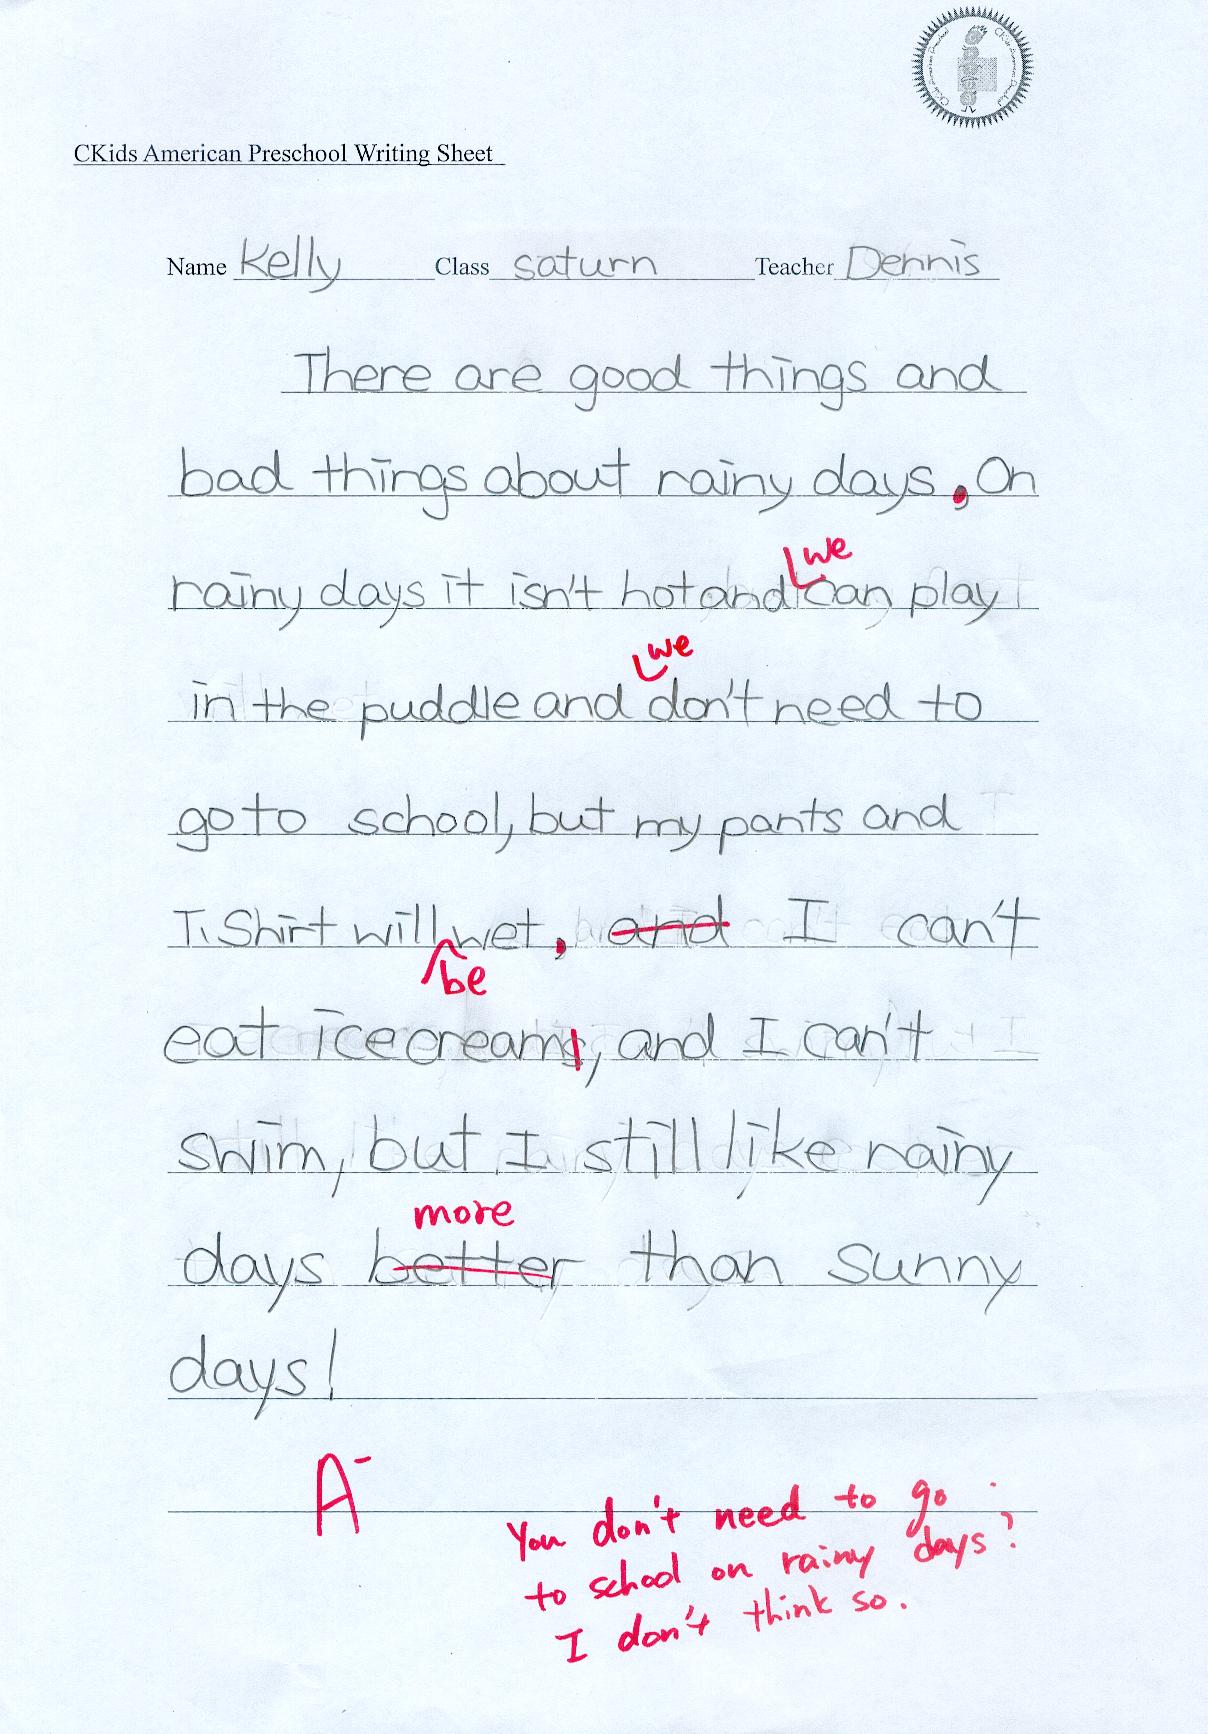 CKids American Preschool Writing Sheet
Name Kelly Class saturn Teacher Dennis
There are good things and
bad things about rainy days. On
we
rainy days it isn't hot and can play
we
in the puddle and don't need to
go to school, but my pants and
T. Shirt will wet, and I can't
be
eat ice creams, and I can't
swim, but I still like rainy
more
days better than sunny
days!
A-
You don't need to go
to school on rainy days?
I don't think so.